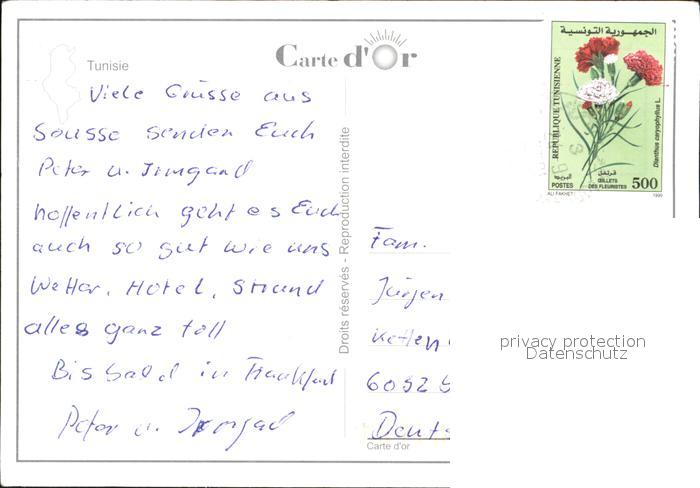 Tunisie
Carte d'Or
Viele Grüsse aus
Sousse senden Euch
Peter u. Irmgard
hoffentlich geht es Euch
auch so gut wie uns
Wetter, Hotel, Strand
alles ganz toll
Bis bald in Frankfurt
Peter u. Irmgard
Droits réservés - Reproduction interdite
الجمهورية التونسية
REPUBLIQUE TUNISIENNE
Dianthus caryophyllus L.
البريد
قرنفل
POSTES
ŒILLETS
DES FLEURISTES
500
ALI FAKHET
1999
Fam.
Jürgen
6092
Deut
Carte d'or
privacy protection
Datenschutz